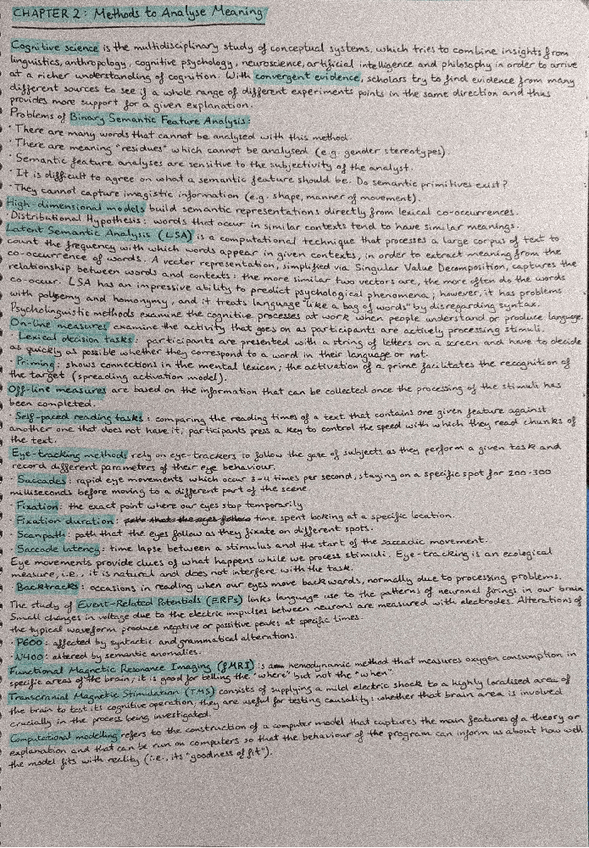 CHAPTER 2: Methods to Analyse Meaning
Cognitive science is the multidisciplinary study of conceptual systems, which tries to combine insights from
linguistics, anthropology, cognitive psychology, neuroscience, artificial intelligence and philosophy in order to arrive
at a richer understanding of cognition. With convergent evidence, scholars try to find evidence from many
different sources to see if a whole range of different experiments points in the same direction and thus
provides more support for a given explanation.
Problems of Binary Semantic Feature Analysis:
· There are many words that cannot be analysed with this method.
· There are meaning "residues" which cannot be analysed (e.g. gender stereotypes).
· Semantic feature analyses are sensitive to the subjectivity of the analyst.
· It is difficult to agree on what a semantic feature should be. Do semantic primitives exist?
· They cannot capture imagistic information (e.g. shape, manner of movement).
High-dimensional models build semantic representations directly from lexical co-occurrences.
· Distributional Hypothesis: words that occur in similar contexts tend to have similar meanings.
Latent Semantic Analysis (LSA) is a computational technique that processes a large corpus of text to
count the frequency with which words appear in given contexts, in order to extract meaning from the
co-occurrence of words. A vector representation, simplified via Singular Value Decomposition, captures the
relationship between words and contexts: the more similar two vectors are, the more often do the words
co-occur. LSA has an impressive ability to predict psychological phenomena; however, it has problems
with polysemy and homonymy, and it treats language "like a bag of words" by disregarding syntax.
Psycholinguistic methods examine the cognitive processes at work when people understand or produce language.
On-line measures examine the activity that goes on as participants are actively processing stimuli.
Lexical decision tasks: participants are presented with a string of letters on a screen and have to decide
as quickly as possible whether they correspond to a word in their language or not.
Priming: shows connections in the mental lexicon; the activation of a prime facilitates the recognition of
the target (spreading activation model).
Off-line measures are based on the information that can be collected once the processing of the stimuli has
been completed.
Self-paced reading tasks: comparing the reading times of a text that contains one given feature against
another one that does not have it; participants press a key to control the speed with which they read chunks of
the text.
Eye-tracking methods rely on eye-trackers to follow the gaze of subjects as they perform a given task and
record different parameters of their eye behaviour.
Saccades: rapid eye movements which occur 3-4 times per second, staying on a specific spot for 200-300
milliseconds before moving to a different part of the scene.
Fixation: the exact point where our eyes stop temporarily.
Fixation duration: path that the eyes follow time spent looking at a specific location.
Scanpath: path that the eyes follow as they fixate on different spots.
Saccade latency: time lapse between a stimulus and the start of the saccadic movement.
Eye movements provide clues of what happens while we process stimuli. Eye-tracking is an ecological
measure, i.e., it is natural and does not interfere with the task.
Backtracks: occasions in reading when our eyes move backwards, normally due to processing problems.
The study of Event-Related Potentials (ERPs) links language use to the patterns of neuronal firings in our brain.
Small changes in voltage due to the electric impulses between neurons are measured with electrodes. Alterations of
the typical waveform produce negative or positive peaks at specific times.
P600: affected by syntactic and grammatical alterations.
N400: altered by semantic anomalies.
Functional Magnetic Resonance Imaging (fMRI) is a hemodynamic method that measures oxygen consumption in
specific areas of the brain; it is good for telling the "where" but not the "when".
Transcranial Magnetic Stimulation (TMS) consists of supplying a mild electric shock to a highly localised area of
the brain to test its cognitive operation; they are useful for testing causality: whether that brain area is involved
crucially in the process being investigated.
Computational modelling refers to the construction of a computer model that captures the main features of a theory or
explanation and that can be run on computers so that the behaviour of the program can inform us about how well
the model fits with reality (i.e., its "goodness of fit").